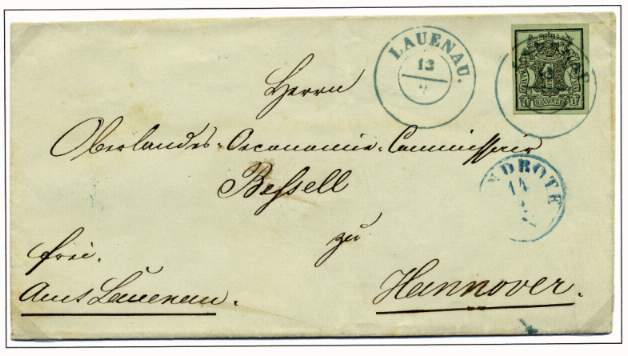 LAUENAU.
13
Herrn
Oberlandes-Oeconomie-Commissair
Bessell
NDROTE
14
zu
frei.
Amt Lauenau.
Hannover.